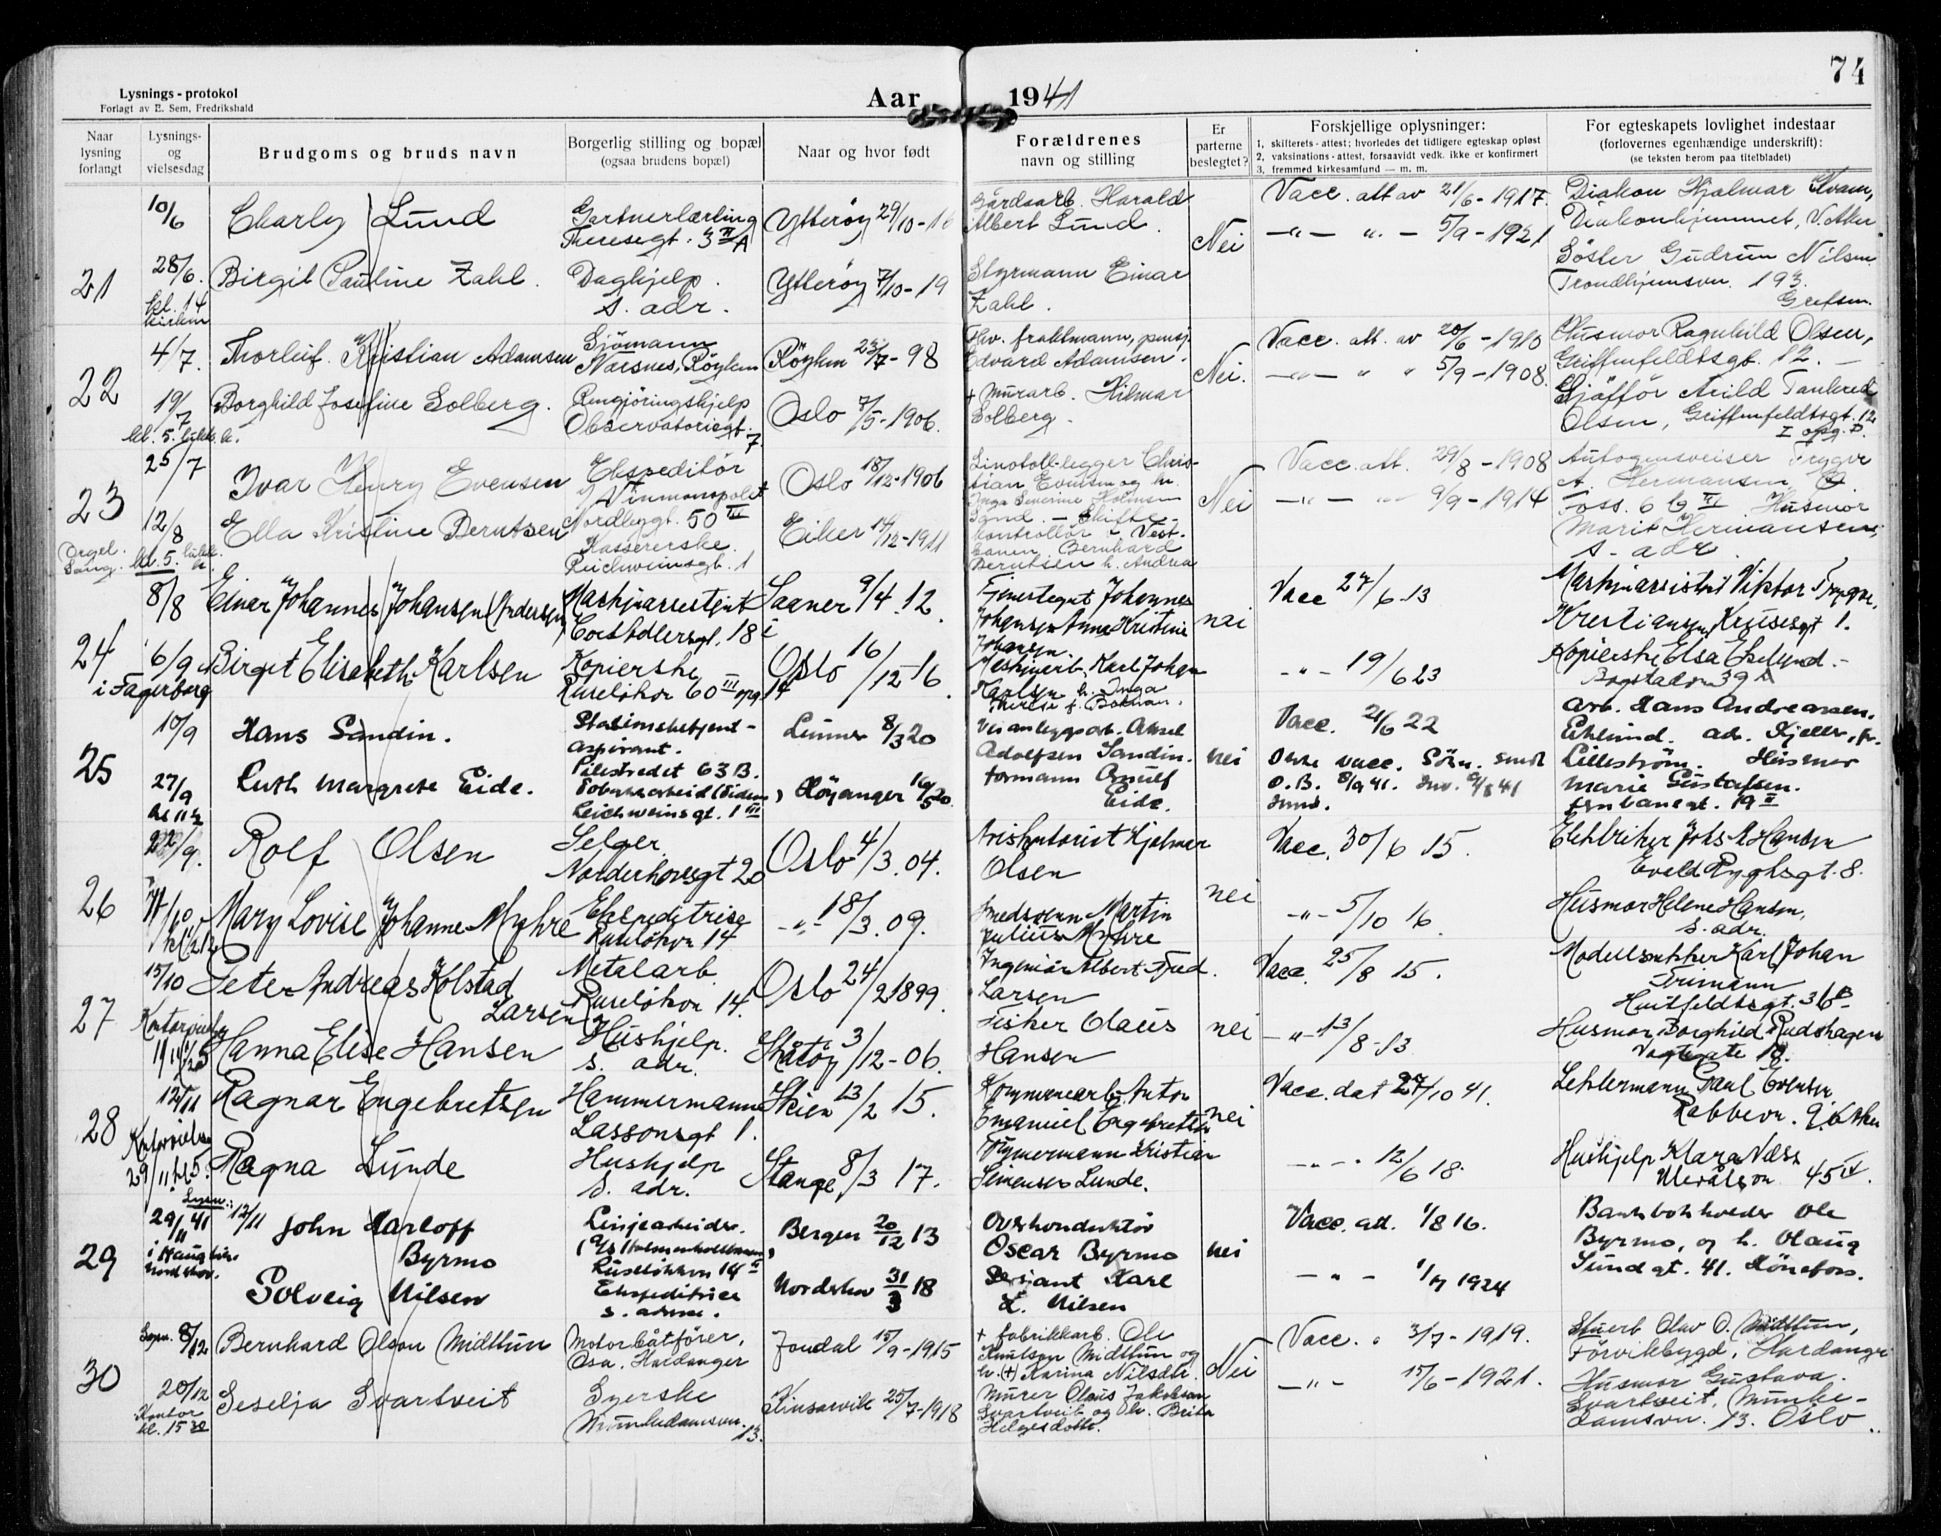 74
Lysnings - protokol
Forlagt av E. Sem, Fredrikshald
Aar 1941
Naar lysning forlangt
Lysnings- og vielsesdag
Brudgoms og bruds navn
Borgerlig stilling og bopæl (ogsaa brudens bopæl)
Naar og hvor født
Forældrenes navn og stilling
Er parterne beslegtet?
Forskjellige oplysninger:
1, skifterets - attest; hvorledes det tidligere egteskap opløst
2, vaksinations - attest, forsaavidt vedk. ikke er konfirmert
3, fremmed kirkesamfund — m. m.
For egteskapets lovlighet indestaar
(forlovernes egenhændige underskrift):
(se teksten herom paa titelbladet)
21
10/6
Charly Lund
Gartnerlærling
Theresegt. 3 II A
Ytterøy 29/10-
Gårdsarb. Harald
Albert Lund.
Nei
Vacc. att av 21/6-1917.
Diakon Hjalmar Kvam,
Diakonhjemmet, V. Aker.
28/6.
kl. 14
Birgit Pauline Zahl.
Daghjelp.
s. adr.
Ytterøy 7/10-19
Styrmann Einar
Zahl.
-"- "- 5/9-1921
Søster Gudrun Nilsen
Trondhjemsvn. 193.
Grefsen.
22
4/7.
Thorleif Kristian Adamsen
Sjømann
Nærsnes, Røyken
Røyken 23/7-98
Edvard Adamsen.
Nei.
Vacc. att. av 20/6-1910
Husmor Ragnhild Olsen,
Griffenfeldtsgt. 12.
19/7
kl. 5.
Borghild Josefine Solberg.
Rengjøringshjelp
Observatoriegt. 7
Oslo 7/5-1906.
+ Murarb. Hilmar
Solberg.
-"- " " 5/9-1908.
Sjåfför Arild Tankred
Olsen, Griffenfeldtsgt. 12
I opg. D.
23
25/7
Ivar Henry Evensen
Ekspeditør
v/ Vinmonopolet
Nordbygt. 50 III
Oslo 18/12-1906
Nei
Vacc. att. 29/8-1908
Autogensveiser Trygve
A. Hermansen,
12/8
Orgel.
Sang.
kl. 5.
Ella Kristine Berntsen
Kassererske.
Reichweinsgt. 1
Eiker 14/12-1911
Kontrollør i Vest-
banen Bernhard
Berntsen h. Andrea
-"- -"- 9/9-1914
Husmor
Marit Hermansen,
s. adr.
24
8/8
Einar Johannes Johansen (Andersen)
Maskinassistent
18 i
Saaner 9/4.12.
Johannes
Johansen Anna Kristine
Johansen.
nei
Vacc 27/6-13
Maskinassistent Viktor Trygve
Kristiansen, Krusesgt 1.
6/9
i Fagerborg
Birgit Elisabeth Karlsen
Kopierske
Ruseløkv 60 III opg 14
Oslo 16/12 16.
Maskinarb. Karl Johan
Karlsen h. Inga
-"- 19/6 23
Kopierske Elsa
Bogstadvn 39 A
25
10/9
Hans Sandin.
Stasjonsbetjent-
aspirant.
Pilestredet 63 B.
Lunner 8/3 20
Veianleggsarb. Aksel
Adolfsen Sandin.
nei
Vacc. 21/6 22
Arb. Hans Andreassen.
ad. Kjeller, pr.
Lillestrøm.
27/9
kl 11½
Ruth Margrete Eide.
Reichweinsgt. 1 III
Høyanger 16/5 20.
Formann Arnulf
Eide.
Husmor
Marie Gustafsen.
26
22/9.
Rolf Olsen
Selger
Norderhovsgt 20
Oslo 4/3.04.
Hjalmar
Olsen
nei
Vacc. 30/6 15.
Elektriker Johs A Hansen
Evald Ryghsgt. 8.
Mary Lovise Johanne Myhre
Ekspeditrise
Ruseløkv 14
-"- 18/3.09.
Smedsvenn Martin
Julius Myhre
-"- 5/10 16.
Husmor Helene Hansen,
s. adr.
27
15/10
Peter Andreas Kolstad
Larsen
Metalarb.
Ruseløkv 14.
Oslo 24/2 1899.
Ingeniør Albert Fred.
Larsen
nei
Vacc. 25/8 15.
Modellsnekker Karl Johan
Huitfeldtsgt. 36 B
Hanna Elise Hansen
Hushjelp.
s. adr.
Skåtøy 3/12-06.
Fisker Olaus
Hansen
-"- 13/8-13
Husmor Borghild Rudshagen
Vogtsgate 18.
28
12/11
Ragnar Engebretsen
Hammermann
Lassonsgt 1.
Skien 13/2 15.
Kommunearb. Anton
Emanuel Engebretsen
nei
Vacc. dat 27/10 41.
Paul Evensen
Rabbevn. 9.
29/11 kl 5.
Ragna Lunde
Hushjelp
s. adr.
Stange 8/3 17.
Tømmermann Kristian
Simensen Lunde.
-"- 12/6 18.
Hushjelp Klara Næss
Ullevålsvn 45 IV.
29
12/11
29/11 41
John Harloff
Byrmo
Linjearbeider
(A/S Holmenkolbanen)
Ruseløkkvn 14 II
Bergen 20/12 13
Overkonduktør
Oscar Byrmo
nei
Vacc. ad. 1/8 16.
Bankbokholder Ole
Byrmo, og h. Olaug
Sundgt. 41. Hønefoss.
Solveig Nilsen
Ekspeditrise
s. adresse.
Nordskov 31/3 18
Sersjant Karl
L. Nilsen
-"- 1924
30
8/12
Bernhard Olson Midttun
Motorbåtfører,
Osa, Hardanger
Jondal 15/9-1915
+ fabrikkarb. Ole
Knutson Midttun og
h. (+) Karina Nilsdtr.
Nei
Vacc. " 3/7-1919.
Olav O. Midttun,
Tørvikbygd, Hardanger
20/12
Kontor
kl. 15 30
Seselja Svartveit
Syerske
Munkedamsvn. 13.
Kinsarvik 25/7-1918
Murer Olaus Jakobson
Svartveit og h. Brita
Helgesdotter.
-"- 15/6-1921.
Husmor Gustava
Svartveit, Munke-
damsvn. 13. Oslo